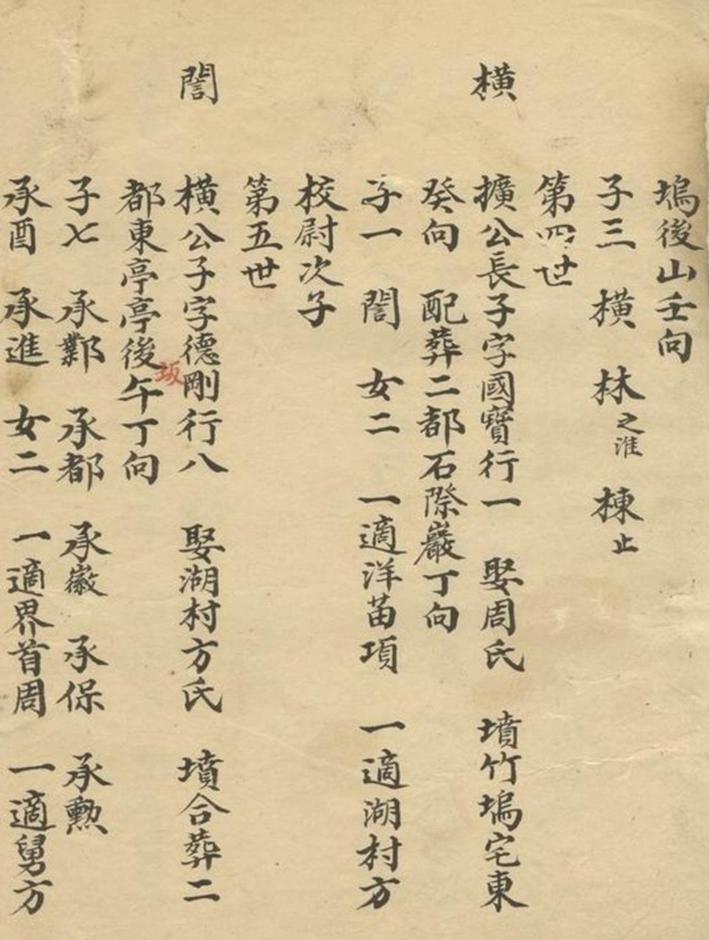 塢後山壬向
子三 橫 林之淮 棟止
第四世
橫
擴公長子字國寶行一 娶周氏 墳竹塢宅東
癸向 配葬二都石際巖丁向
子一 誾 女二 一適洋苗項 一適湖村方
校尉次子
第五世
誾
橫公子字德剛行八 娶湖村方氏 墳合葬二
都東亭亭後坂午丁向
子七 承鄴 承都 承徽 承保 承勲
承酉 承進 女二 一適界首周 一適舅方